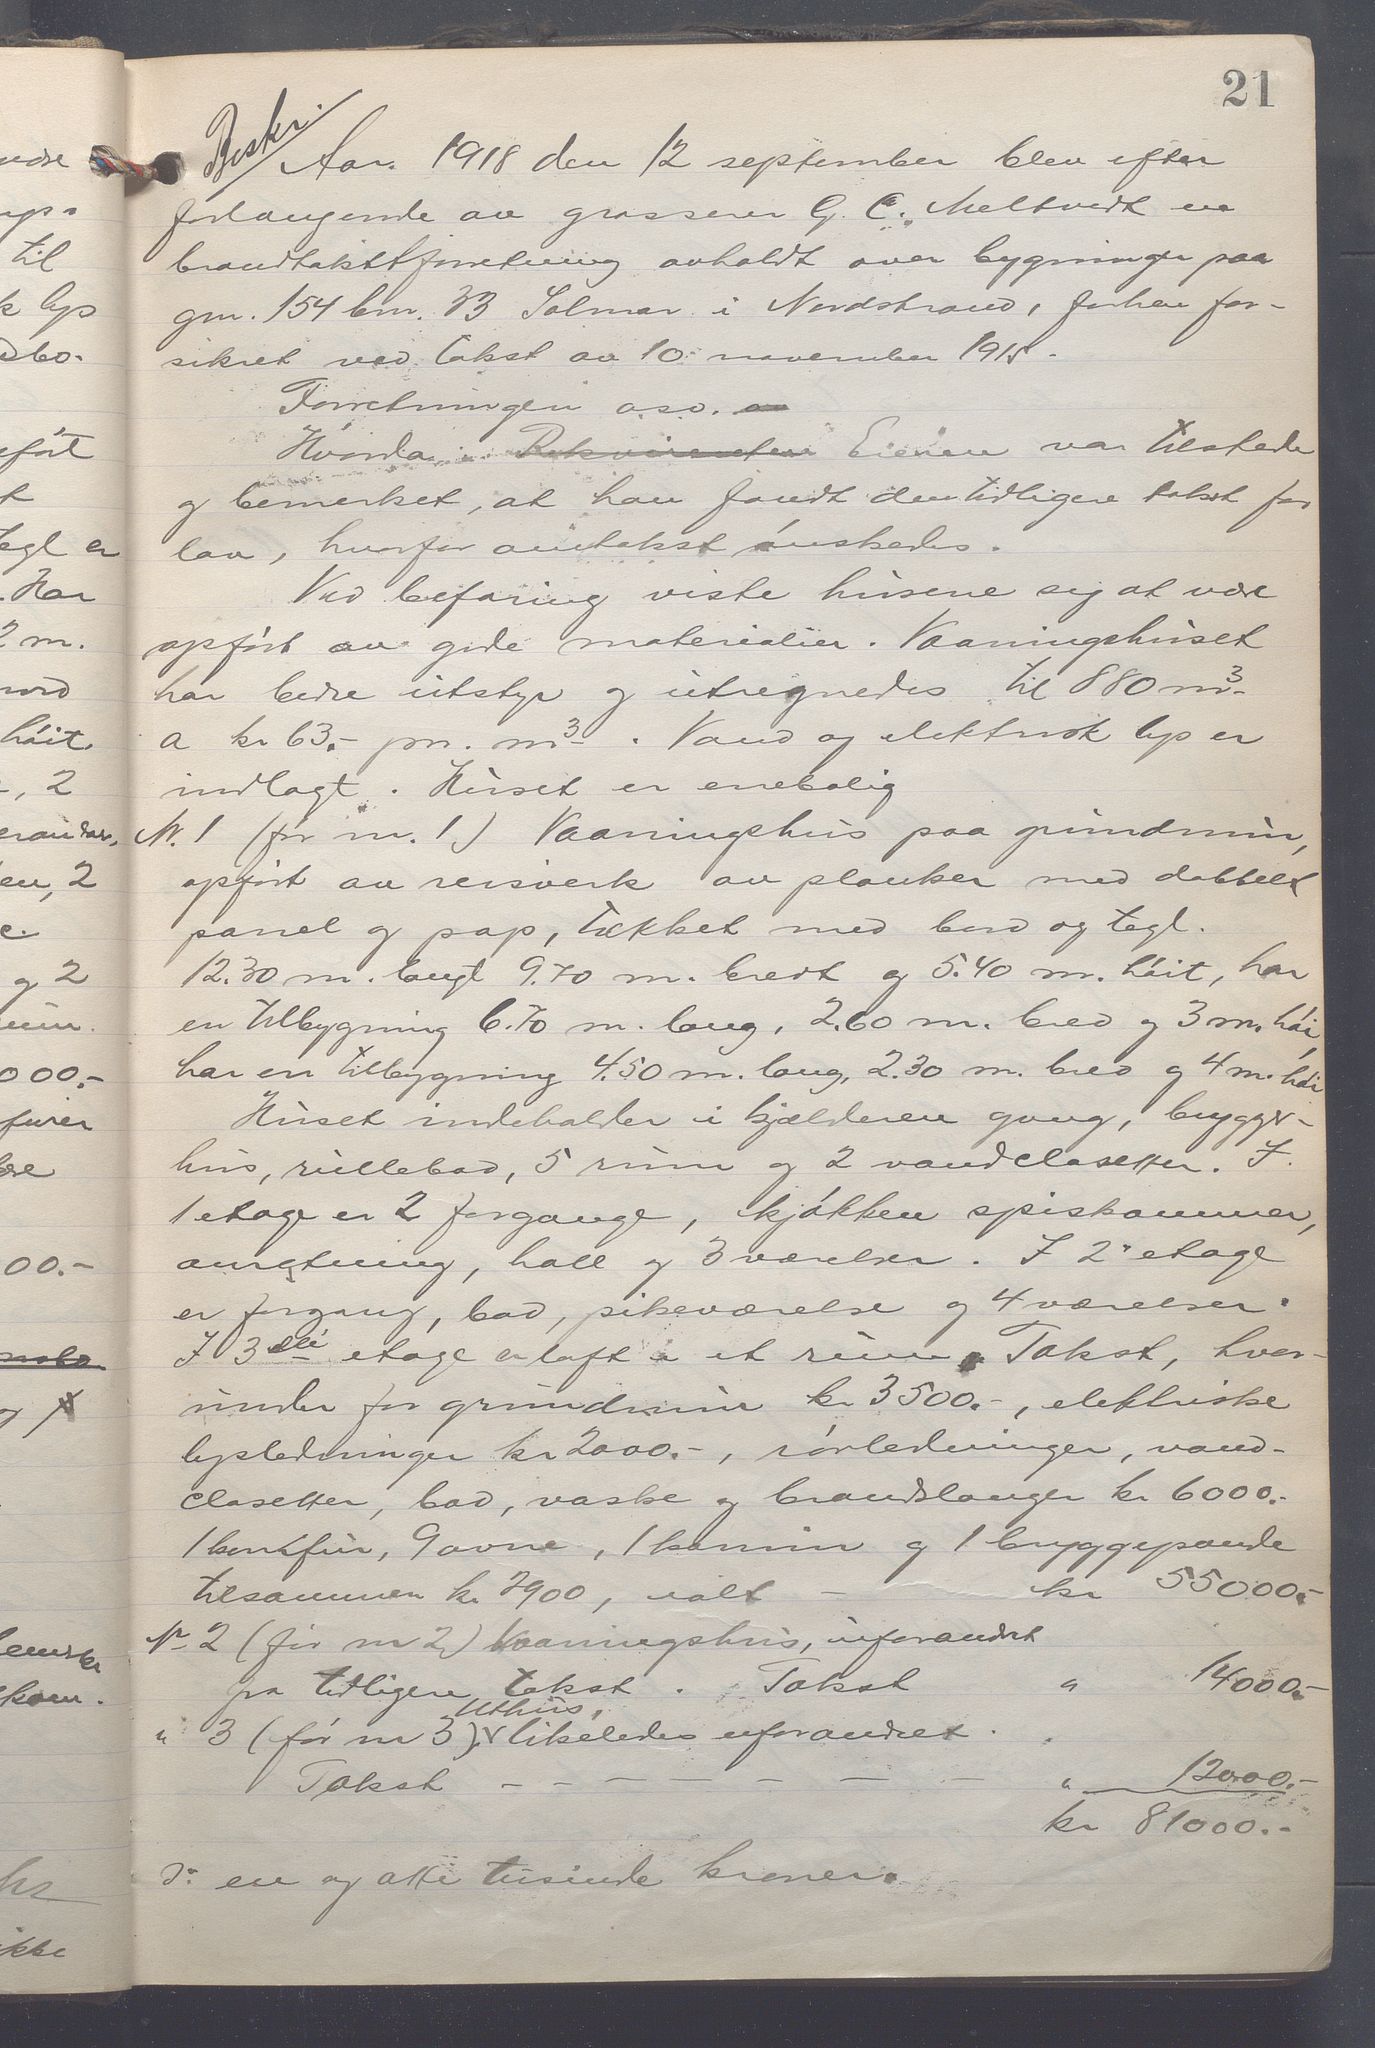 21
Beskr.
Aar. 1918 den 12 september blev efter
forlangende av grosserer G. C. Meltvedt en
brandtakstforretning avholdt over bygninger paa
gnr. 154 bnr. 33 Solmar i Nordstrand, forhen for-
sikret ved takst av 10 november 1915.
Forretningen o.s.v. av
Hvorda Rekvirenten Eieren var tilstede
og bemerket, at han fandt den tidligere takst for
lav, hvorfor omtakst ønskedes.
Ved befaring viste husene sig at være
opført av gode materialier. Vaaningshuset
har bedre utstyr og utregnedes til 880 m³
a kr 63.- pr. m³. Vand og elektrisk lys er
indlagt. Huset er enebolig
Nr. 1 (før nr. 1.) Vaaningshus paa grundmur,
opført av reisverk av planker med dobbelt
panel og pap, tækket med bord og tegl.
12.30 m. langt 9.70 m. bredt og 5.40 m. høit, har
en tilbygning 6.70 m. lang, 2.60 m. bred og 3 m. høi,
har en tilbygning 4.50 m. lang, 2.30 m. bred og 4 m. høi
Huset indeholder i kjælderen gang, brygger-
hus, rullebod, 5 rum og 2 vandclosetter. I
1 etage er 2 forgange, kjøkken spiskammer,
anretning, hall og 3 værelser. I 2. etage
er forgang, bad, pikeværelse og 4 værelser.
I 3die etage er loft i et rum. Takst, hver-
under for grundmur kr 3500.-, elektriske
lysledninger kr 2000.-, rørledninger, vand-
closetter, bad, vaske og brandslanger kr 6000.-
1 komfur, 9 ovne, 1 kamin og 1 bryggepande
tilsammen kr. 2900, ialt - kr 55000.-
Nr 2 (før nr 2) Vaaningshus, uforandret
fra tidligere takst. Takst " 14000.-
" 3 (før nr 3), Uthus, likeledes uforandret.
Takst - - - - - - - - " 12000.-
kr 81000.-
d: en og otti tusinde kroner.